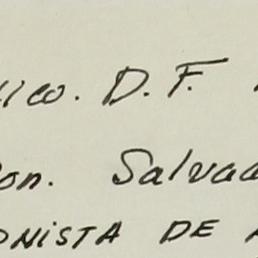 ico. D. F.
on. Salvad
ONISTA DE A